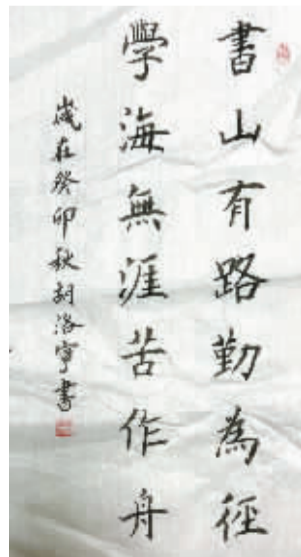 書山有路勤為徑
學海無涯苦作舟
歲在癸卯秋胡洛寧書